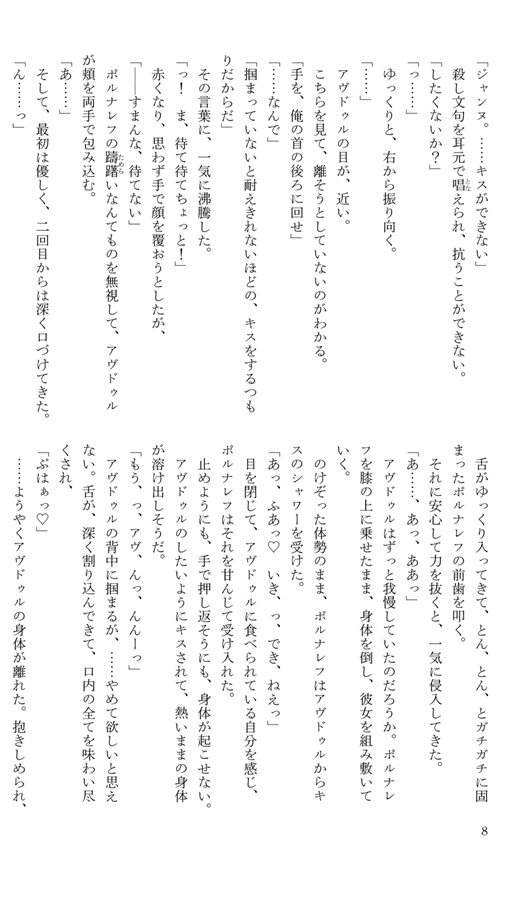 「ジャンヌ。……キスができない」
殺し文句を耳元で唱えられ、抗うことができない。
「したくないか？」
「っ……」
ゆっくりと、右から振り向く。
「……」
アヴドゥルの目が、近い。
こちらを見て、離そうとしていないのがわかる。
「手を、俺の首の後ろに回せ」
「……なんで」
「掴まっていないと耐えきれないほどの、キスをするつも
りだからだ」
その言葉に、一気に沸騰した。
「っ！　ま、待て待てちょっと！」
赤くなり、思わず手で顔を覆おうとしたが、
「――すまんな、待てない」
ポルナレフの躊躇いなんてものを無視して、アヴドゥル
が頬を両手で包み込む。
「あ……」
そして、最初は優しく、二回目からは深く口づけてきた。
「ん……っ」
舌がゆっくり入ってきて、とん、とん、とガチガチに固
まったポルナレフの前歯を叩く。
それに安心して力を抜くと、一気に侵入してきた。
「あ……、あっ、ああっ」
アヴドゥルはずっと我慢していたのだろうか。ポルナレ
フを膝の上に乗せたまま、身体を倒し、彼女を組み敷いて
いく。
のけぞった体勢のまま、ポルナレフはアヴドゥルからキ
スのシャワーを受けた。
「あっ、ふあっ♡　いき、っ、でき、ねえっ」
目を閉じて、アヴドゥルに食べられている自分を感じ、
ポルナレフはそれを甘んじて受け入れた。
止めようにも、手で押し返そうにも、身体が起こせない。
アヴドゥルのしたいようにキスされて、熱いままの身体
が溶け出しそうだ。
「もう、っ、アヴ、んっ、んんーっ」
アヴドゥルの背中に掴まるが、……やめて欲しいと思え
ない。舌が、深く割り込んできて、口内の全てを味わい尽
くされ、
「ぷはぁっ♡」
……ようやくアヴドゥルの身体が離れた。抱きしめられ、
8